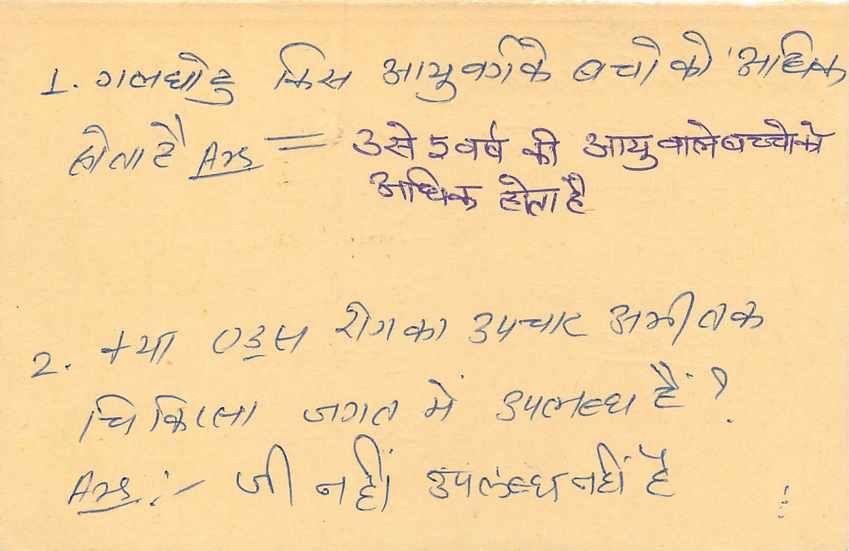 1. गलघोटु किस आयु वर्ग के बचो को अधिक
होता है Ans = उसे 5 वर्ष की आयु वाले बच्चो को
अधिक होता है
2. क्या एड्स रोग का उपचार अभी तक
चिकित्सा जगत में उपलब्ध हैं ?
Ans :- जी नहीं उपलब्ध नहीं है